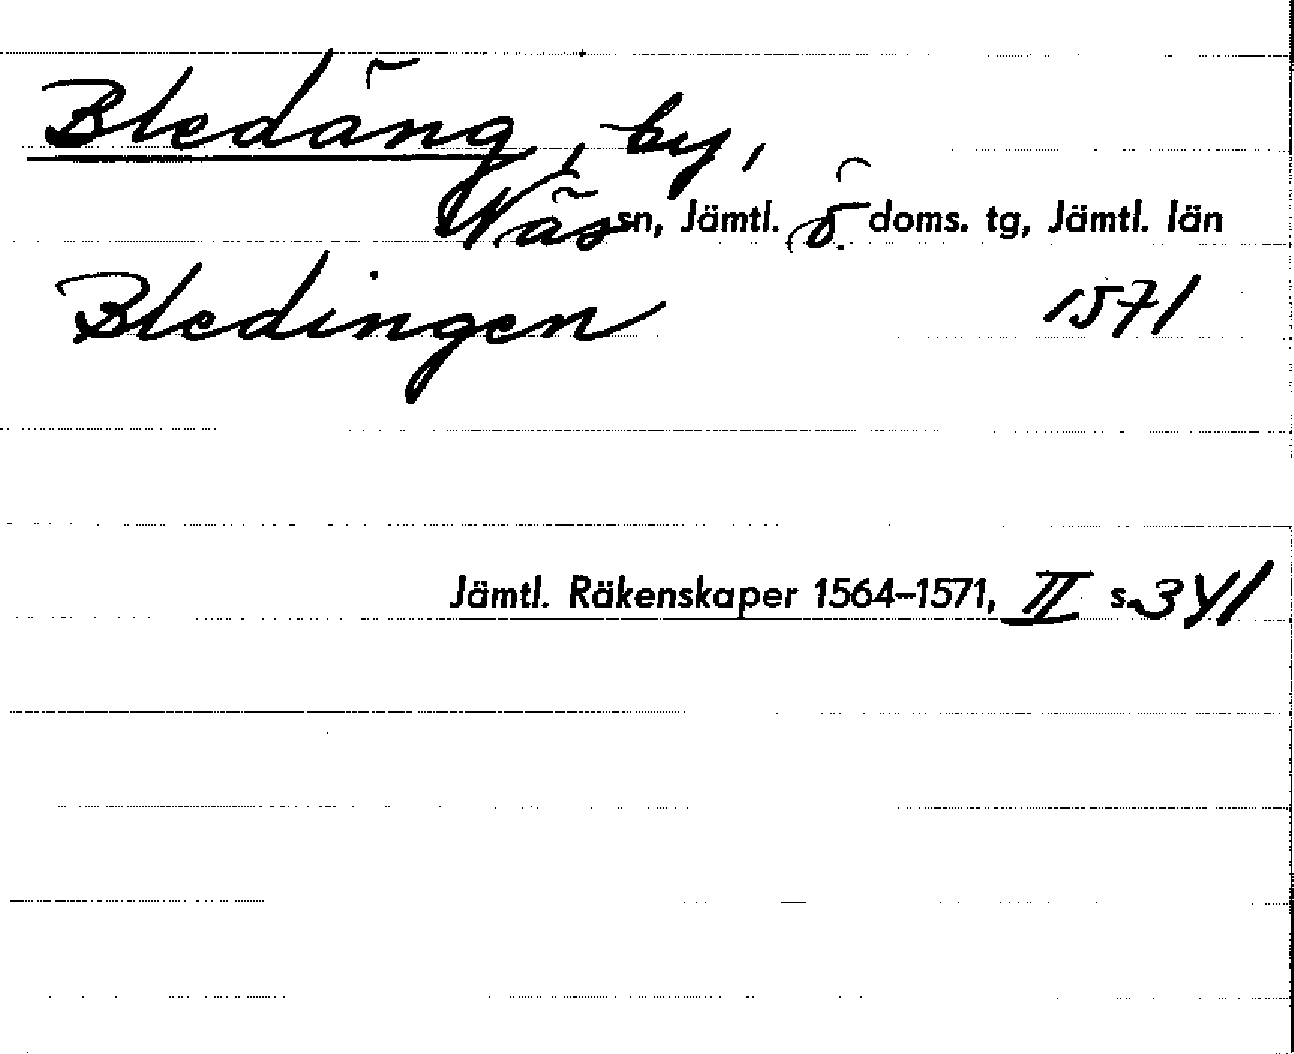 Bledäng, by,
Näs sn, Jämtl. ö. doms. tg, Jämtl. län
Bledingen 1571
Jämtl. Räkenskaper 1564–1571, II s. 341